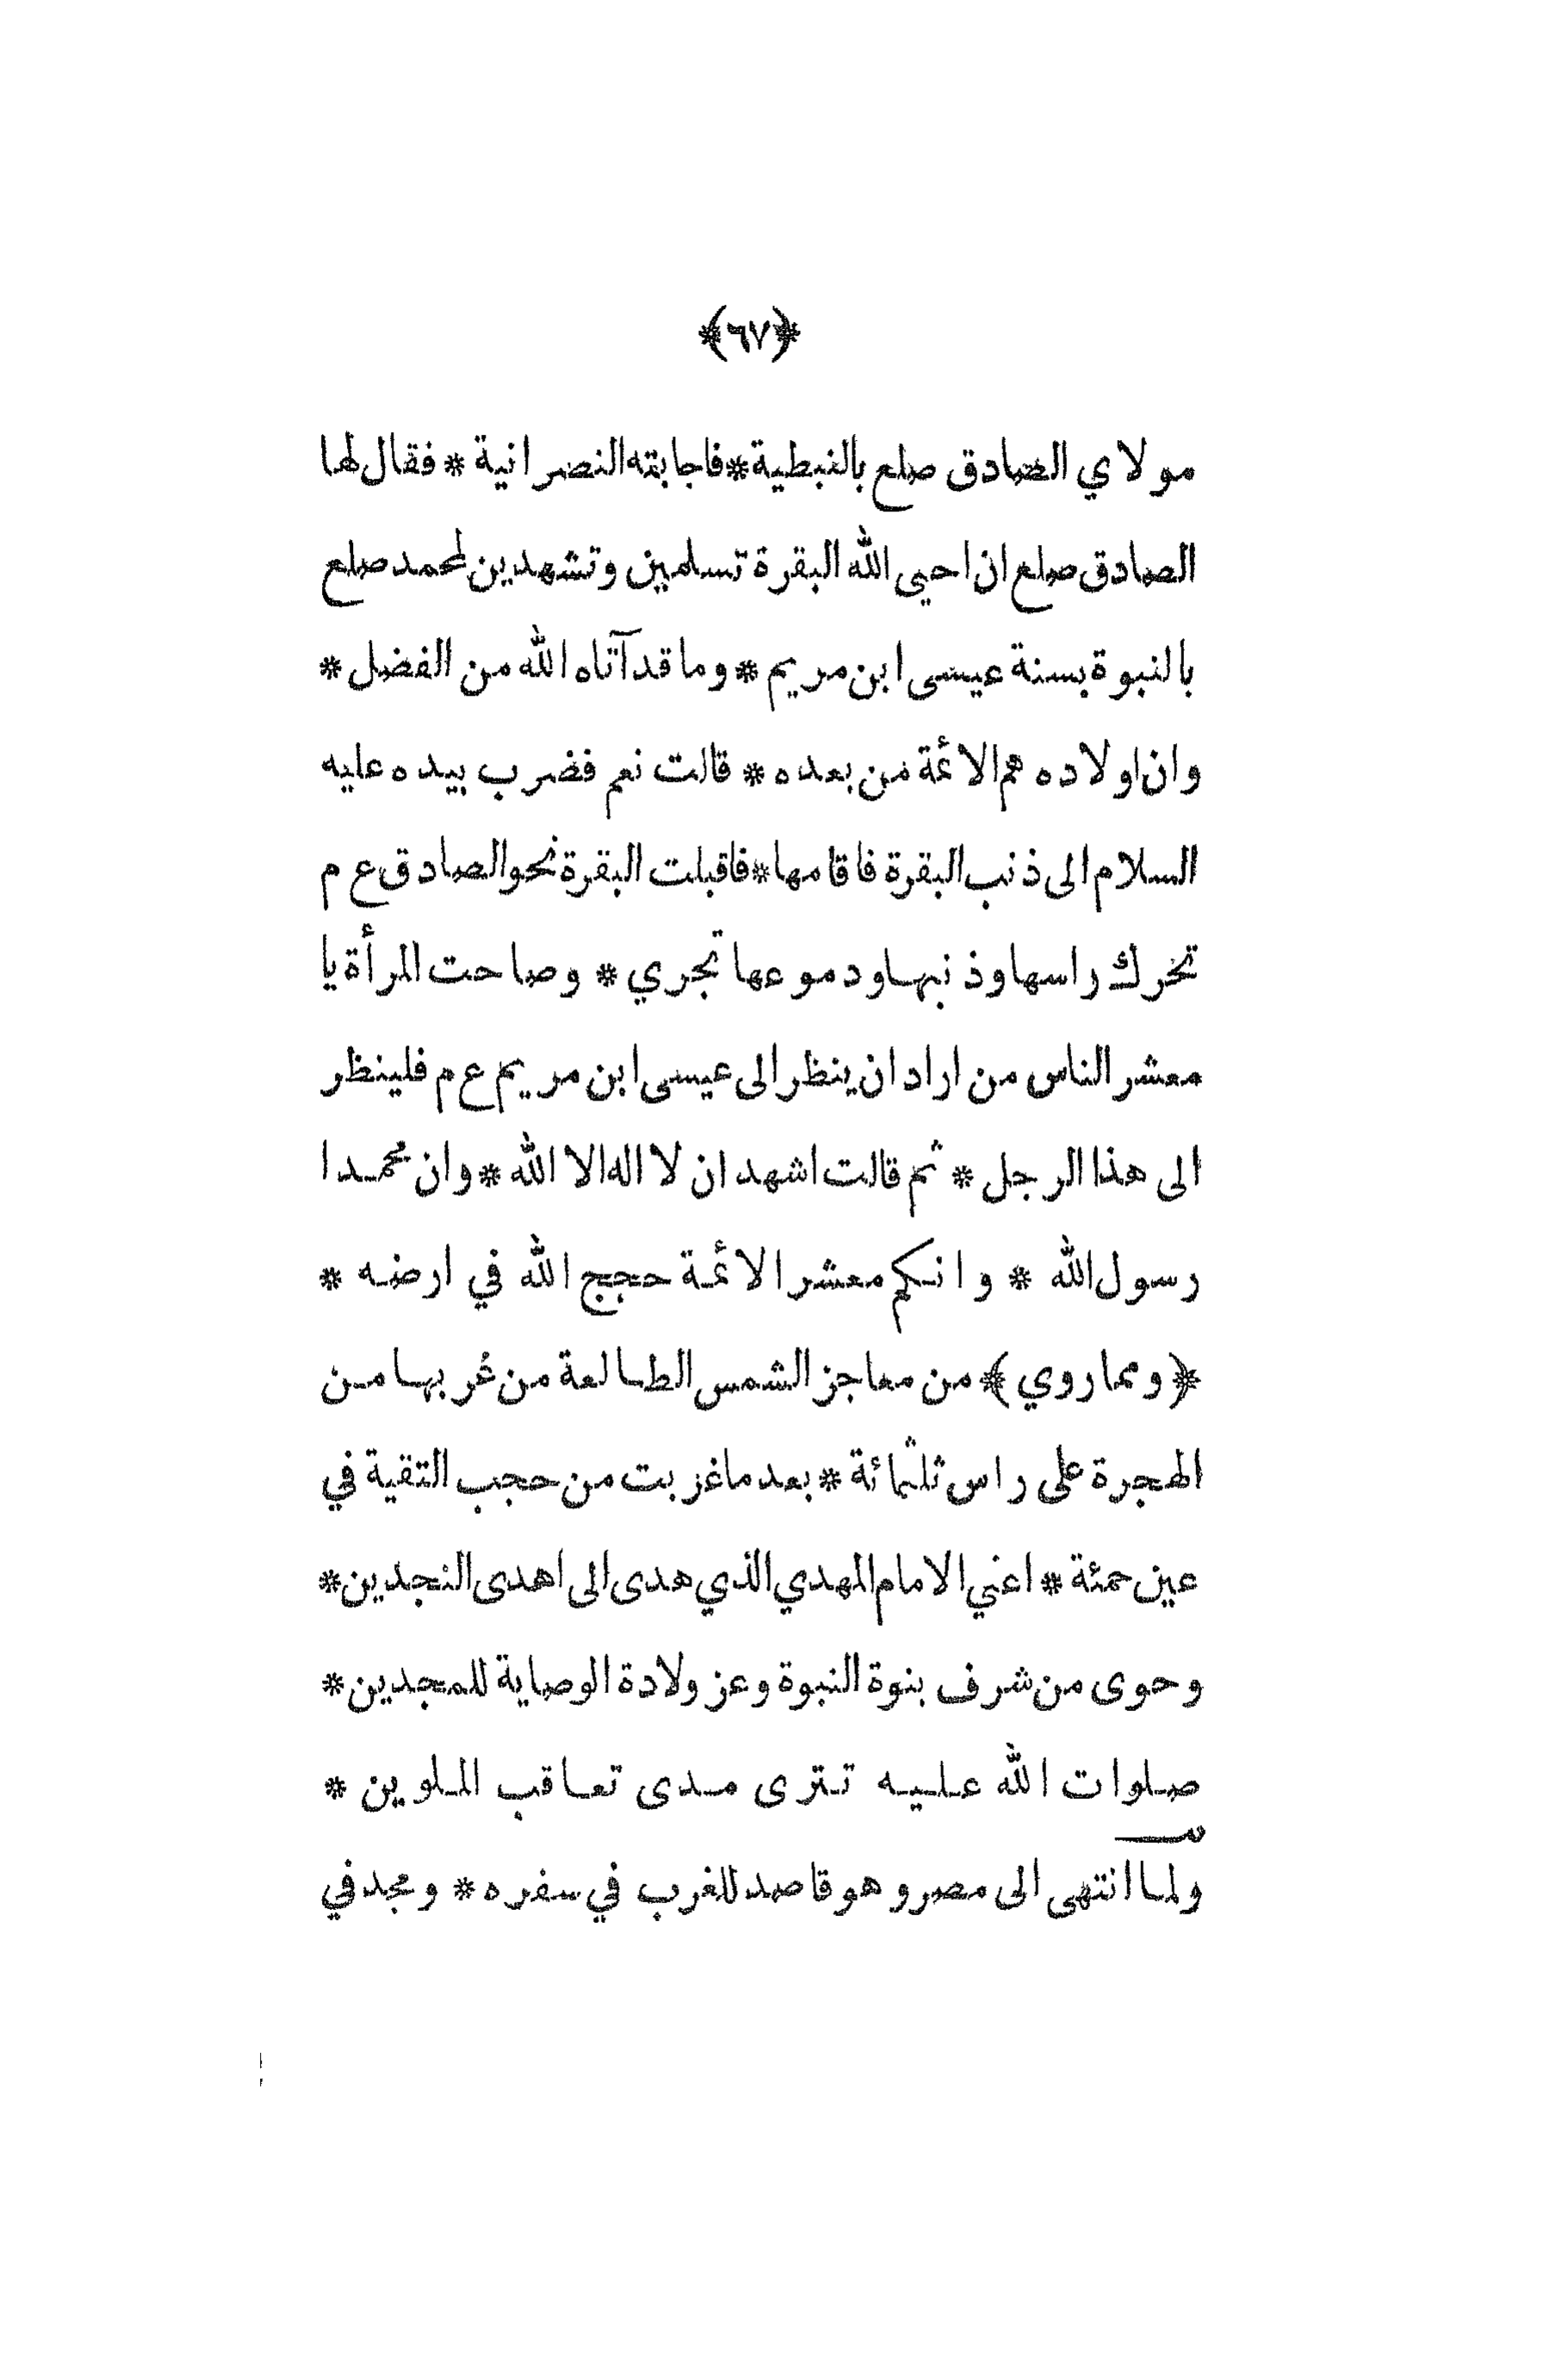 ﴿٦٧﴾
مولاي الصادق صلع بالنبطية * فاجابته النصرانية * فقال لها
الصادق صلع ان احيى الله البقرة تسلمين وتشهدين لمحمد صلع
بالنبوة بسنة عيسى ابن مريم * وما قد آتاه الله من الفضل *
وان اولاده هم الائمة من بعده * قالت نعم فضرب بيده عليه
السلام الى ذنب البقرة فاقامها * فاقبلت البقرة نحو الصادق ع م
تحرك راسها وذنبها ودموعها تجري * وصاحت المرأة يا
معشر الناس من اراد ان ينظر الى عيسى ابن مريم ع م فلينظر
الى هذا الرجل * ثم قالت اشهد ان لا اله الا الله * وان محمدا
رسول الله * وانكم معشر الائمة حجج الله في ارضه *
﴿ومما روي﴾ من معاجز الشمس الطالعة من غربها من
الهجرة على راس ثلثمائة * بعد ما غربت من حجب التقية في
عين حمئة * اعني الامام المهدي الذي هدى الى اهدى النجدين *
وحوى من شرف بنوة النبوة وعز ولادة الوصاية للمجدين *
صلوات الله عليه تترى مدى تعاقب الملوين *
ولما انتهى الى مصر وهو قاصد للغرب في سفره * ومجد في